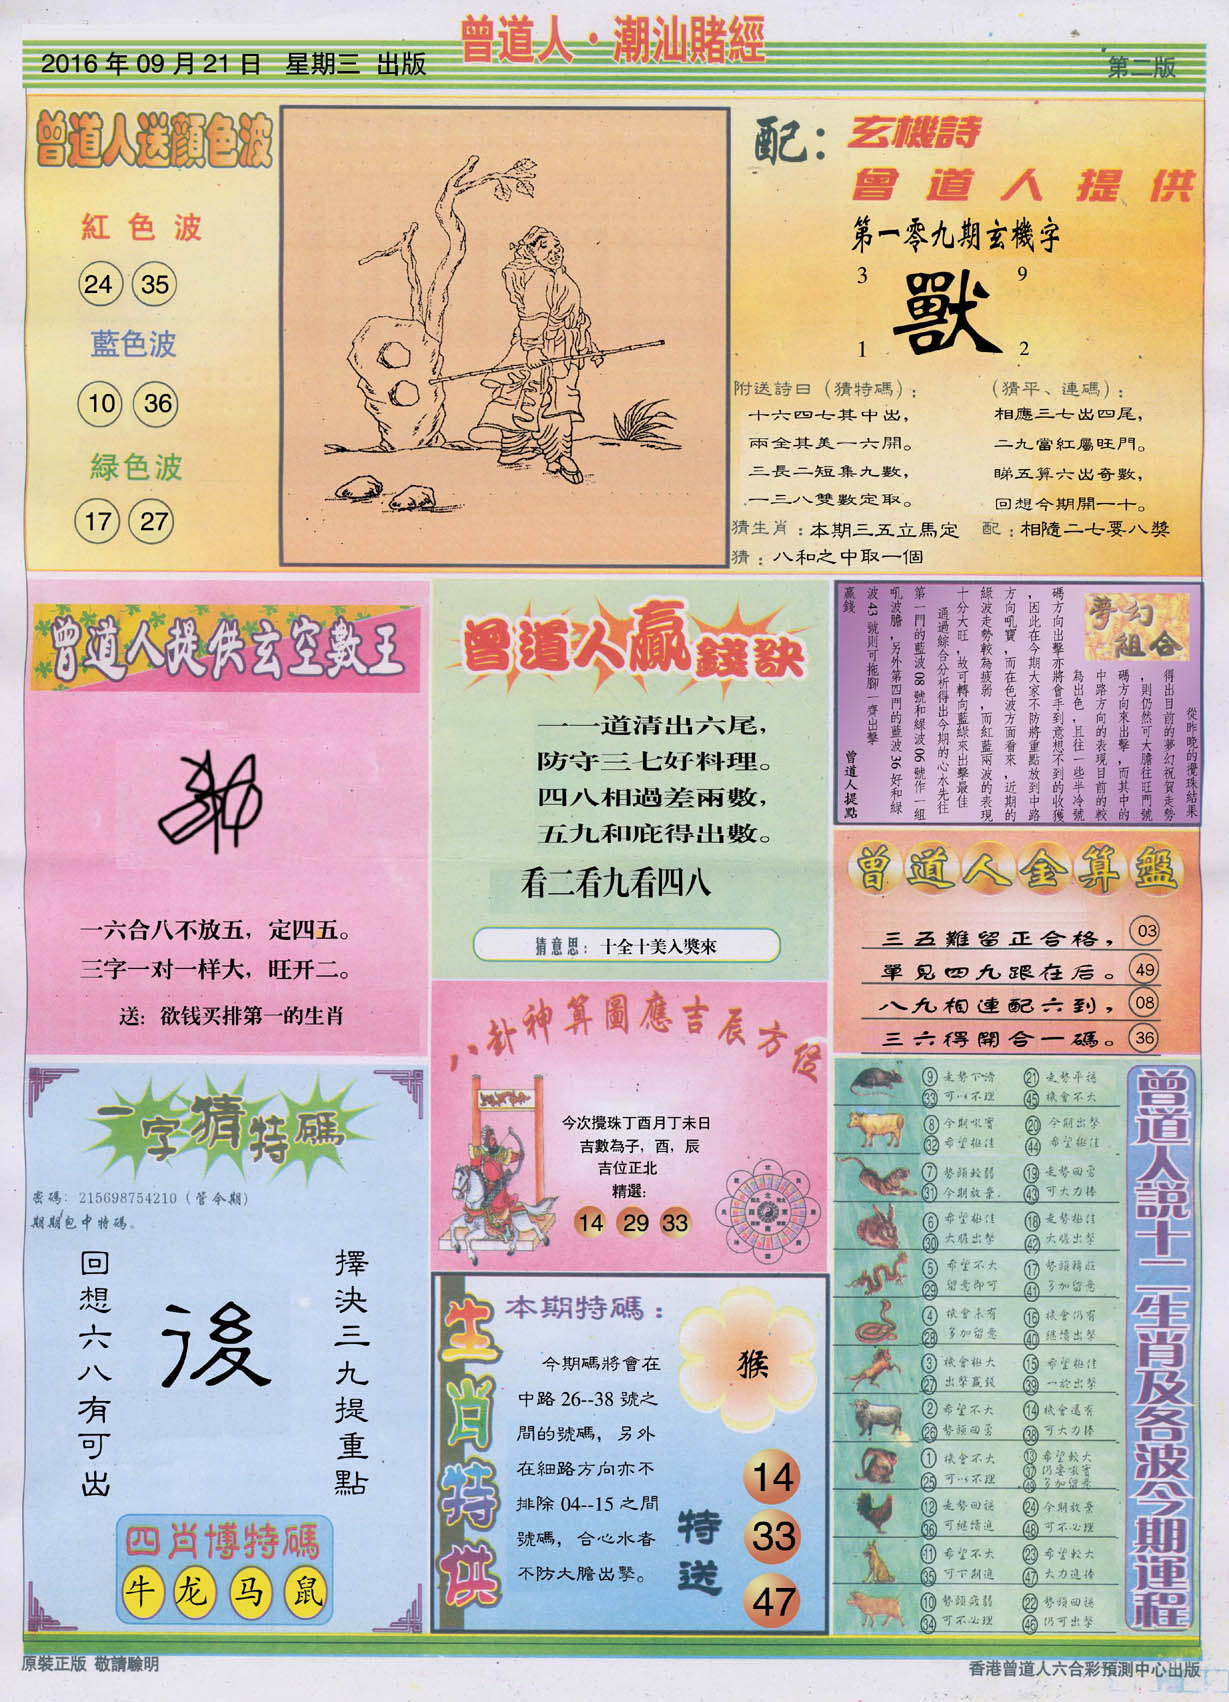 曾道人·潮汕賭經
2016 年 09 月 21 日 星期三 出版
第二版
曾道人送顏色波
紅色波
24 35
藍色波
10 36
緑色波
17 27
配：
玄機詩
曾道人提供
第一零九期玄機字
3 9
獸
1 2
附送詩曰（猜特碼）：
十六四七其中出，
兩全其美一六開。
三長二短集九數，
一三八雙數定取。
（猜平、連碼）：
相應三七出四尾，
二九當紅屬旺門。
睇五算六出奇數，
回想今期開一十。
猜生肖：本期三五立馬定
配：相隨二七要八獎
猜：八和之中取一個
曾道人提供玄空數王
一六合八不放五，定四五。
三字一对一样大，旺开二。
送：欲钱买排第一的生肖
曾道人贏錢訣
一一道清出六尾，
防守三七好料理。
四八相過差兩數，
五九和庇得出數。
看二看九看四八
猜意思：十全十美入獎來
夢幻組合
從昨晚的攪珠結果
得出目前的夢幻祝賀走勢
，則仍然可大膽往旺門號
碼方向來出擊，而其中的
中路方向的表現目前的較
為出色，且往一些半冷號
碼方向出擊亦將會手到意想不到的收獲
，因此在今期大家不防將重點放到中路
方向吼寶，而在色波方面看來，近期的
綠波走勢較為疲弱，而紅藍兩波的表現
十分大旺，故可轉向藍綠來出擊最佳
通過綜合分析得出今期的心水先往
第一門的藍波 08 號和綠波 06 號作一組
吼波膽，另外第四門的藍波 36 好和綠
波 43 號則可拖腳一齊出擊
贏錢
曾道人提點
曾道人金算盤
三五難留正合格， 03
單見四九跟在后。 49
八九相連配六到， 08
三六得開合一碼。 36
八卦神算圖應吉辰方位
今次攪珠丁酉月丁未日
吉數為子，酉，辰
吉位正北
精選：
14 29 33
一字猜特碼
密碼：215698754210（管令期）
期期包中特碼。
擇決三九提重點
後
回想六八有可出
四肖博特碼
牛 龙 马 鼠
生肖特供
本期特碼：
今期碼將會在
中路 26--38 號之
間的號碼，另外
在細路方向亦不
排除 04--15 之間
號碼，合心水者
不防大膽出擊。
猴
特送
14
33
47
曾道人説十二生肖及各波今期運程
9 走勢下滑 21 走勢平穩
33 可以不理 45 機會不大
8 今期吸實 20 今期出擊
32 希望極佳 44 希望極佳
7 勢頭較弱 19 走勢回勇
31 今期放棄 43 可大力捧
6 希望極佳 18 走勢極佳
30 大膽出擊 42 大膽出擊
5 希望不大 17 勢頭轉旺
29 留意即可 41 多加留意
4 機會未有 16 機會仍有
28 多加留意 40 繼續出擊
3 機會極大 15 希望極佳
27 出擊贏錢 39 一於出擊
2 希望不大 14 機會還有
26 勢頭回勇 38 可大力捧
1 機會不大 13 希望較大
25 可以不理 37 仍要吸實
49 多加留意
12 走勢回穩 24 今期放棄
36 可繼續追 48 可不必理
11 希望不大 23 希望較大
35 可下期追 47 大力追捧
10 勢頭疲弱 22 勢頭回穩
34 可不必理 46 仍可出擊
原裝正版 敬請驗明
香港曾道人六合彩預測中心出版